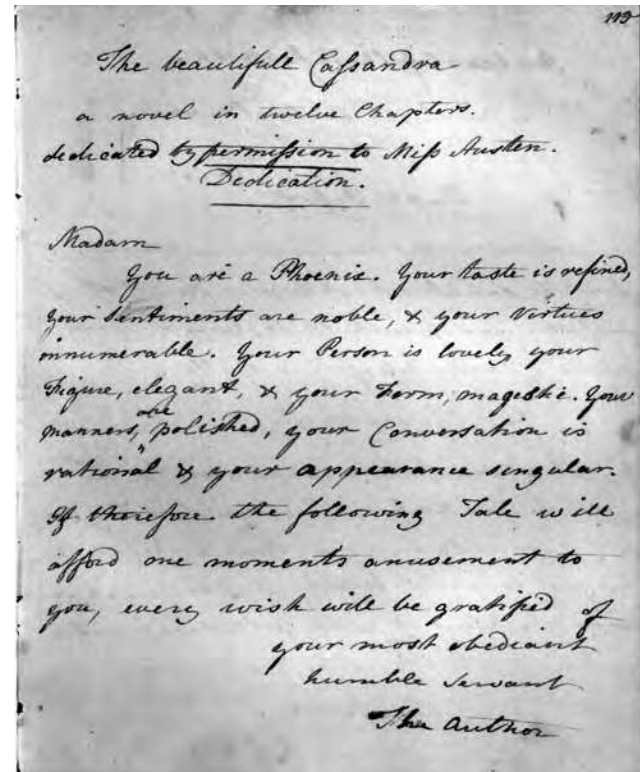 113
The beautifull Cassandra
a novel in twelve Chapters.
dedicated by permission to Miss Austen.
Dedication.
Madam
You are a Phoenix. Your taste is refined,
your Sentiments are noble, & your Virtues
innumerable. Your Person is lovely your
Figure, elegant, & your Form, magestic. Your
manners, are polished, your Conversation is
rational & your appearance singular.
If therefore the following Tale will
afford one moments amusement to
you, every wish will be gratified of
your most obediant
humble servant
The Author